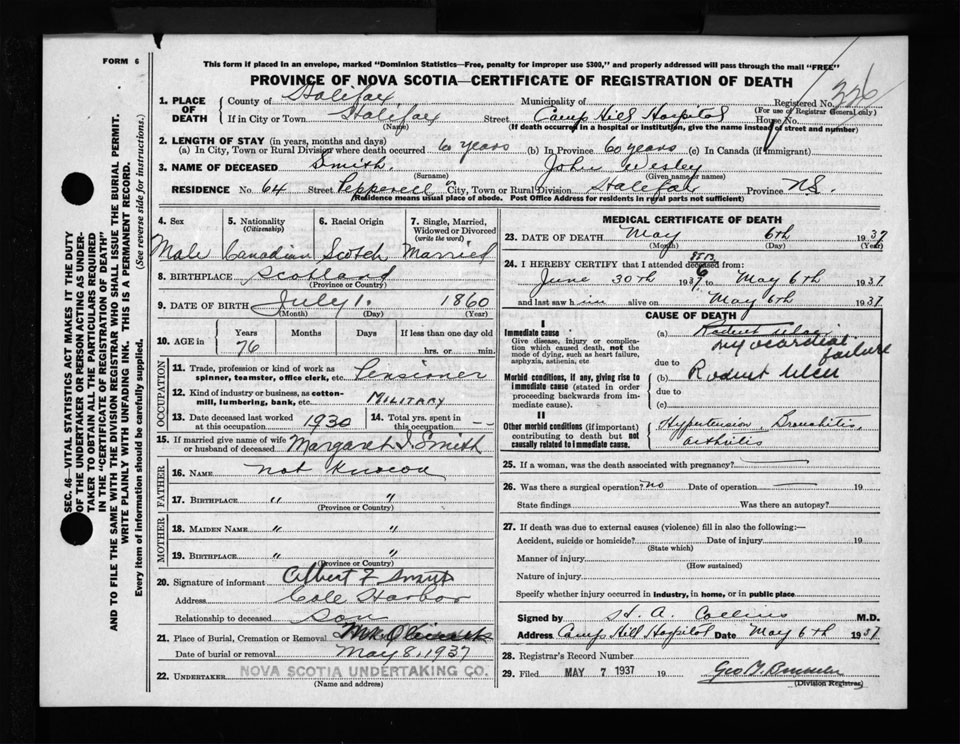 FORM 6
This form if placed in an envelope, marked "Dominion Statistics—Free, penalty for improper use $300," and properly addressed will pass through the mail "FREE"
PROVINCE OF NOVA SCOTIA—CERTIFICATE OF REGISTRATION OF DEATH
1. PLACE OF DEATH
County of Halifax Municipality of Registered No. 326
(For use of Registrar General only)
If in City or Town Halifax Street Camp Hill Hospital House No.
(Name) (If death occurred in a hospital or institution, give the name instead of street and number)
2. LENGTH OF STAY (in years, months and days)
(a) In City, Town or Rural Division where death occurred 60 years (b) In Province 60 years (c) In Canada (if immigrant)
3. NAME OF DECEASED Smith. John Wesley
(Surname) (Given name or names)
RESIDENCE No. 64 Street Pepperell City, Town or Rural Division Halifax Province N.S.
(Residence means usual place of abode. Post Office Address for residents in rural parts not sufficient)
4. Sex 5. Nationality (Citizenship) 6. Racial Origin 7. Single, Married, Widowed or Divorced (write the word)
Male Canadian Scotch Married
8. BIRTHPLACE Scotland
(Province or Country)
9. DATE OF BIRTH July 1. 1860
(Month) (Day) (Year)
10. AGE in Years Months Days If less than one day old
76 hrs. or min.
OCCUPATION
11. Trade, profession or kind of work as spinner, teamster, office clerk, etc. Pensioner
12. Kind of industry or business, as cotton-mill, lumbering, bank, etc. MILITARY
13. Date deceased last worked at this occupation 1930 14. Total yrs. spent in this occupation --
15. If married give name of wife or husband of deceased Margaret I Smith
FATHER
16. NAME not known
17. BIRTHPLACE " "
(Province or Country)
MOTHER
18. MAIDEN NAME " "
19. BIRTHPLACE " "
(Province or Country)
20. Signature of informant Albert F Smith
Address Cole Harbor
Relationship to deceased Son
21. Place of Burial, Cremation or Removal
Date of burial or removal May 8, 1937
22. UNDERTAKER NOVA SCOTIA UNDERTAKING CO.
(Name and address)
MEDICAL CERTIFICATE OF DEATH
23. DATE OF DEATH May 6th 1937
(Month) (Day) (Year)
24. I HEREBY CERTIFY that I attended deceased from:
June 30th 1936 to May 6th 1937
and last saw him alive on May 6th 1937
CAUSE OF DEATH
I
Immediate cause
Give disease, injury or complication which caused death, not the mode of dying, such as heart failure, asphyxia, asthenia, etc
(a) Rodent Ulcer, Myocardial failure
due to
Morbid conditions, if any, giving rise to immediate cause (stated in order proceeding backwards from immediate cause).
(b) Rodent Ulcer
due to
(c)
II
Other morbid conditions (if important) contributing to death but not causally related to immediate cause.
Hypertension Bronchitis,
arthritis
25. If a woman, was the death associated with pregnancy? —
26. Was there a surgical operation? no Date of operation — 19
State findings Was there an autopsy?
27. If death was due to external causes (violence) fill in also the following:—
Accident, suicide or homicide? Date of injury 19
(State which)
Manner of injury
(How sustained)
Nature of injury
Specify whether injury occurred in industry, in home, or in public place
Signed by H. A. Collins M.D.
Address Camp Hill Hospital Date May 6th 1937
28. Registrar's Record Number
29. Filed MAY 7 1937 19
(Division Registrar)
SEC. 46—VITAL STATISTICS ACT MAKES IT THE DUTY
OF THE UNDERTAKER OR PERSON ACTING AS UNDER-
TAKER TO OBTAIN ALL THE PARTICULARS REQUIRED
IN THE "CERTIFICATE OF REGISTRATION OF DEATH"
AND TO FILE THE SAME WITH THE DIVISION REGISTRAR WHO SHALL ISSUE THE BURIAL PERMIT.
WRITE PLAINLY WITH UNFADING INK. THIS IS A PERMANENT RECORD.
Every item of information should be carefully supplied. (See reverse side for instructions.)